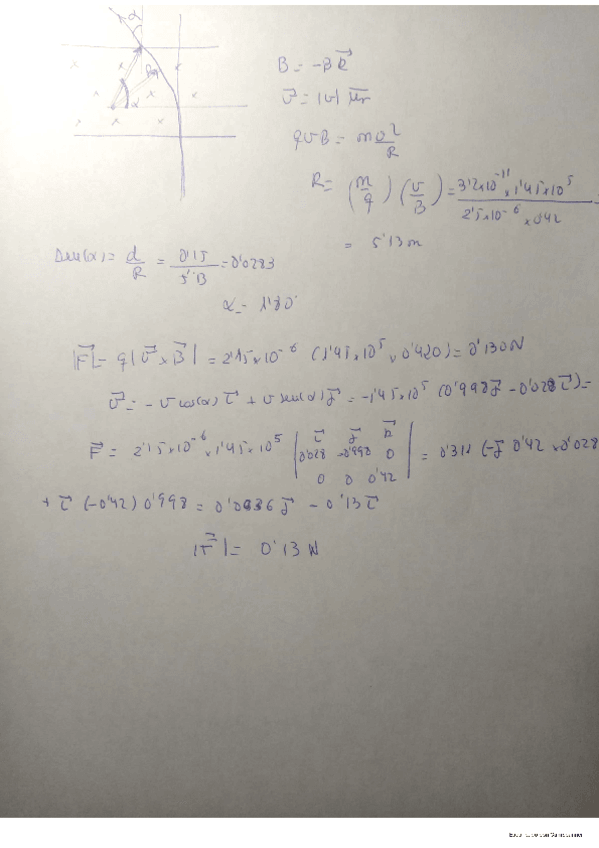 B = -B k
v = |v| μr
qvB = m v²/R
R = (m/q) (v/B) = 3'2x10⁻¹¹ x 1'45x10⁵ / 2'15x10⁻⁶ x 0'42 =
= 5'13 m
sen(α) = d/R = 0'15/5'13 = 0'0283
|F| = q |v x B| = 2'15x10⁻⁶ (1'45x10⁵ x 0'420) = 0'130 N
v = - v cos(α) i + v sen(α) j = -1'45x10⁵ (0'998 j - 0'028 i) =
F = 2'15x10⁻⁶ x 1'45x10⁵ | i j k
0'028 -0'998 0
0 0 0'42 | = 0'312 (-j 0'42 x 0'028
+ i (-0'42) 0'998 = 0'0036 j - 0'13 i
|F| = 0'13 N